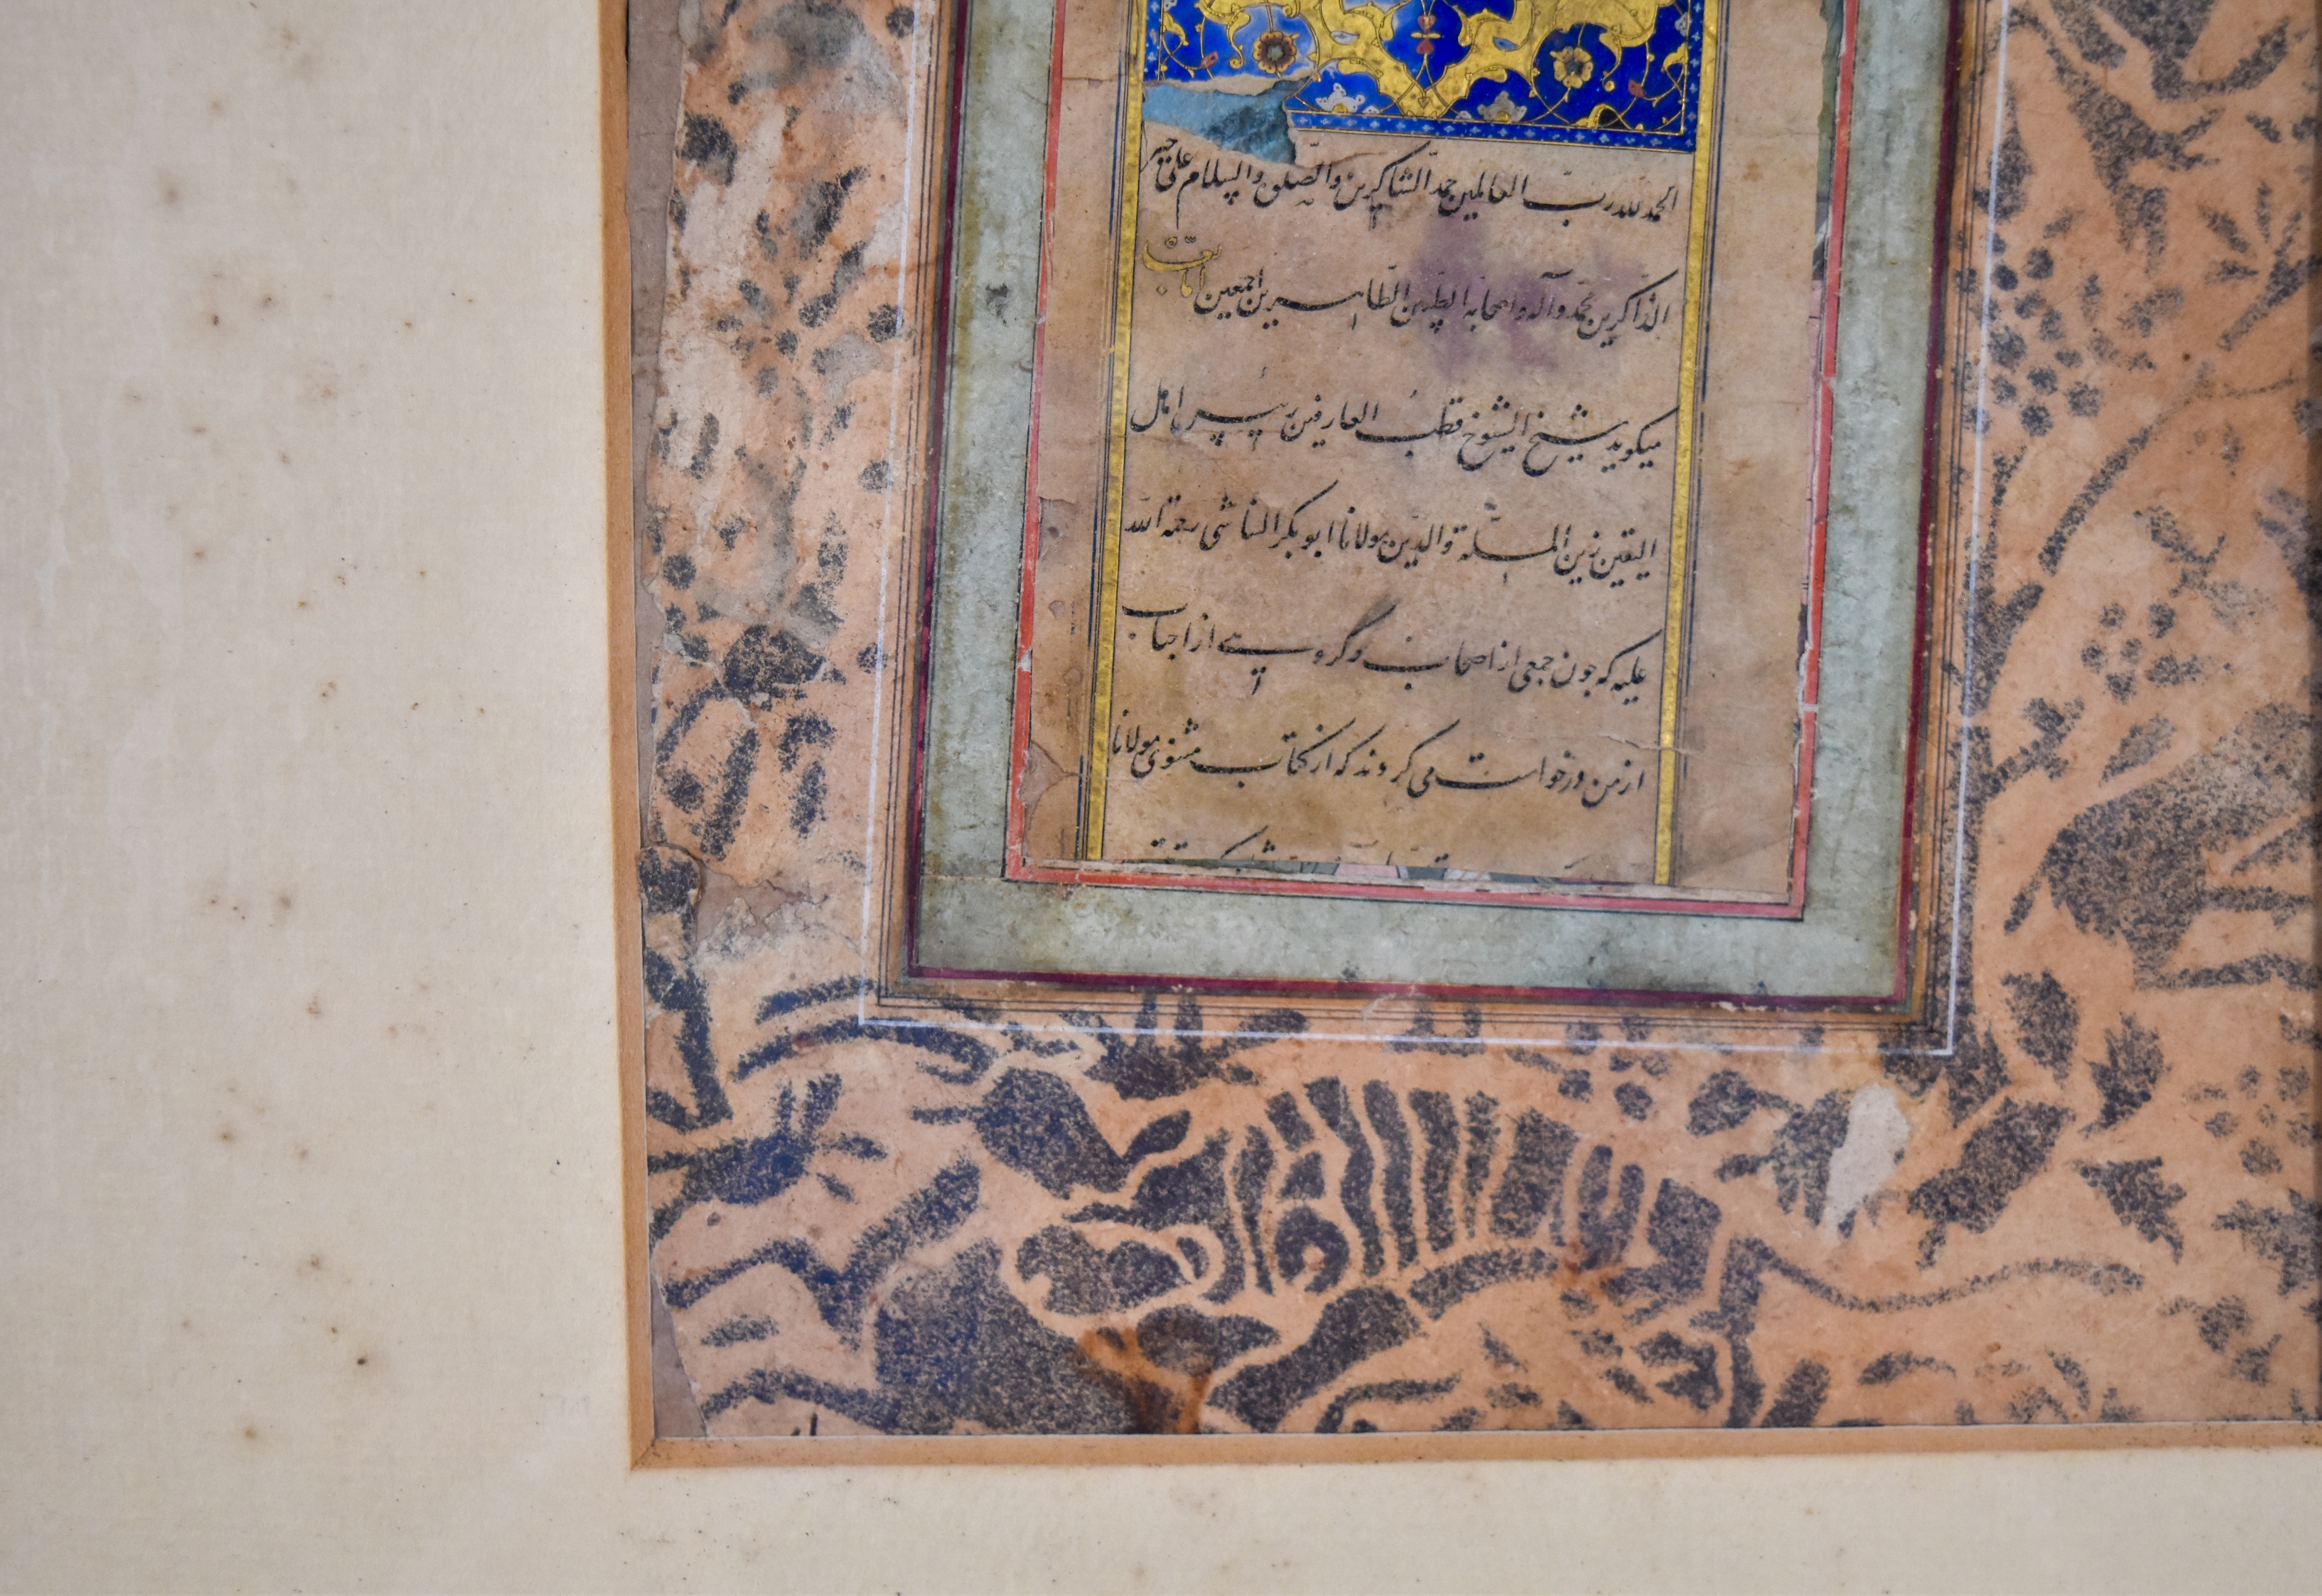 الحمد لله رب العالمین حمد الشاکرین والصلوة والسلام علی خیر
الذاکرین محمد وآله واصحابه الطیبین الطاهرین اجمعین اما بعد
میکوید شیخ الشیوخ قطب العارفین پیر اهل
الیقین زین الملة والدین مولانا ابوبکر الشاشی رحمة الله
علیه که چون جمعی از اصحاب و گروهی از احباب
از من درخواست می کردند که از کتاب مثنوی مولانا